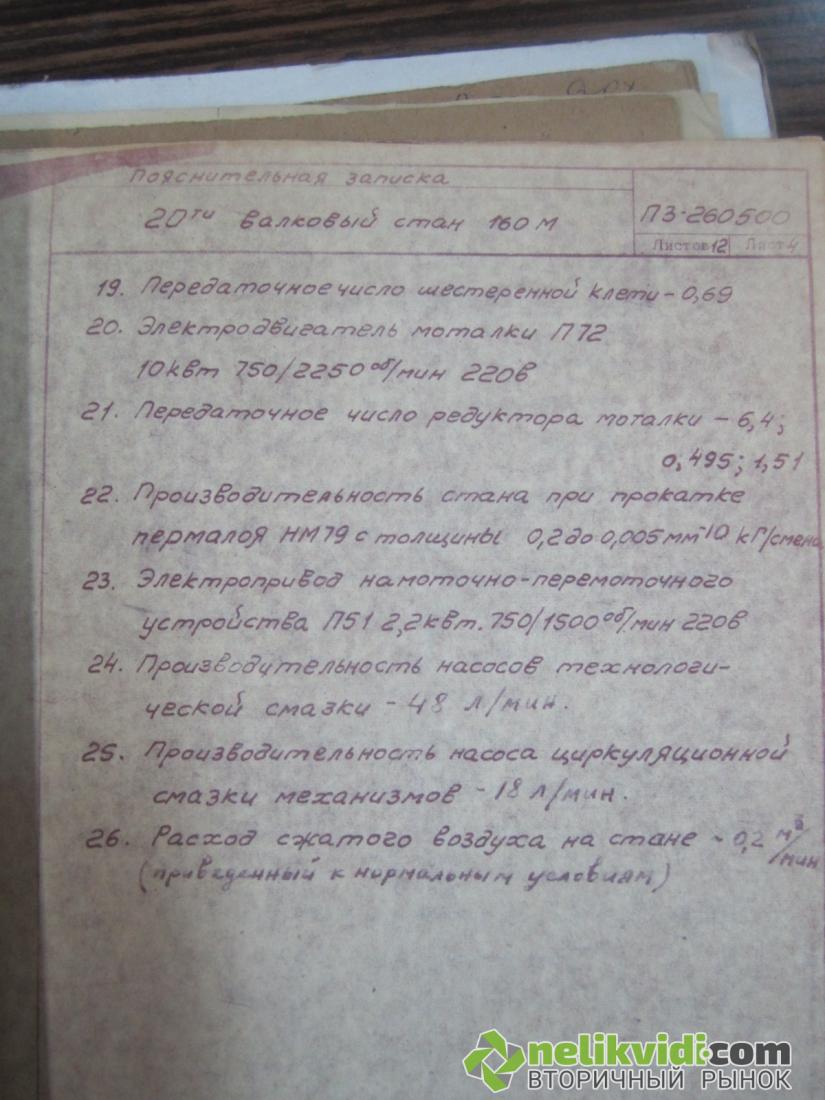 Пояснительная записка
20ти валковый стан 160 м
ПЗ-260500
Листов 12 Лист 4
19. Передаточное число шестеренной клети - 0,69
20. Электродвигатель моталки П72
10 квт 750/2250 об/мин 220в
21. Передаточное число редуктора моталки - 6,4;
0,495; 1,51
22. Производительность стана при прокатке
пермалоя НМ79 с толщины 0,2 до 0,005 мм - 10 кГ/смена
23. Электропривод намоточно-перемоточного
устройства П51 2,2 квт. 750/1500 об/мин 220в
24. Производительность насосов технологи-
ческой смазки - 48 л/мин.
25. Производительность насоса циркуляционной
смазки механизмов - 18 л/мин.
26. Расход сжатого воздуха на стане - 0,2 м³/мин
(приведенный к нормальным условиям)
nelikvidi.com
ВТОРИЧНЫЙ РЫНОК